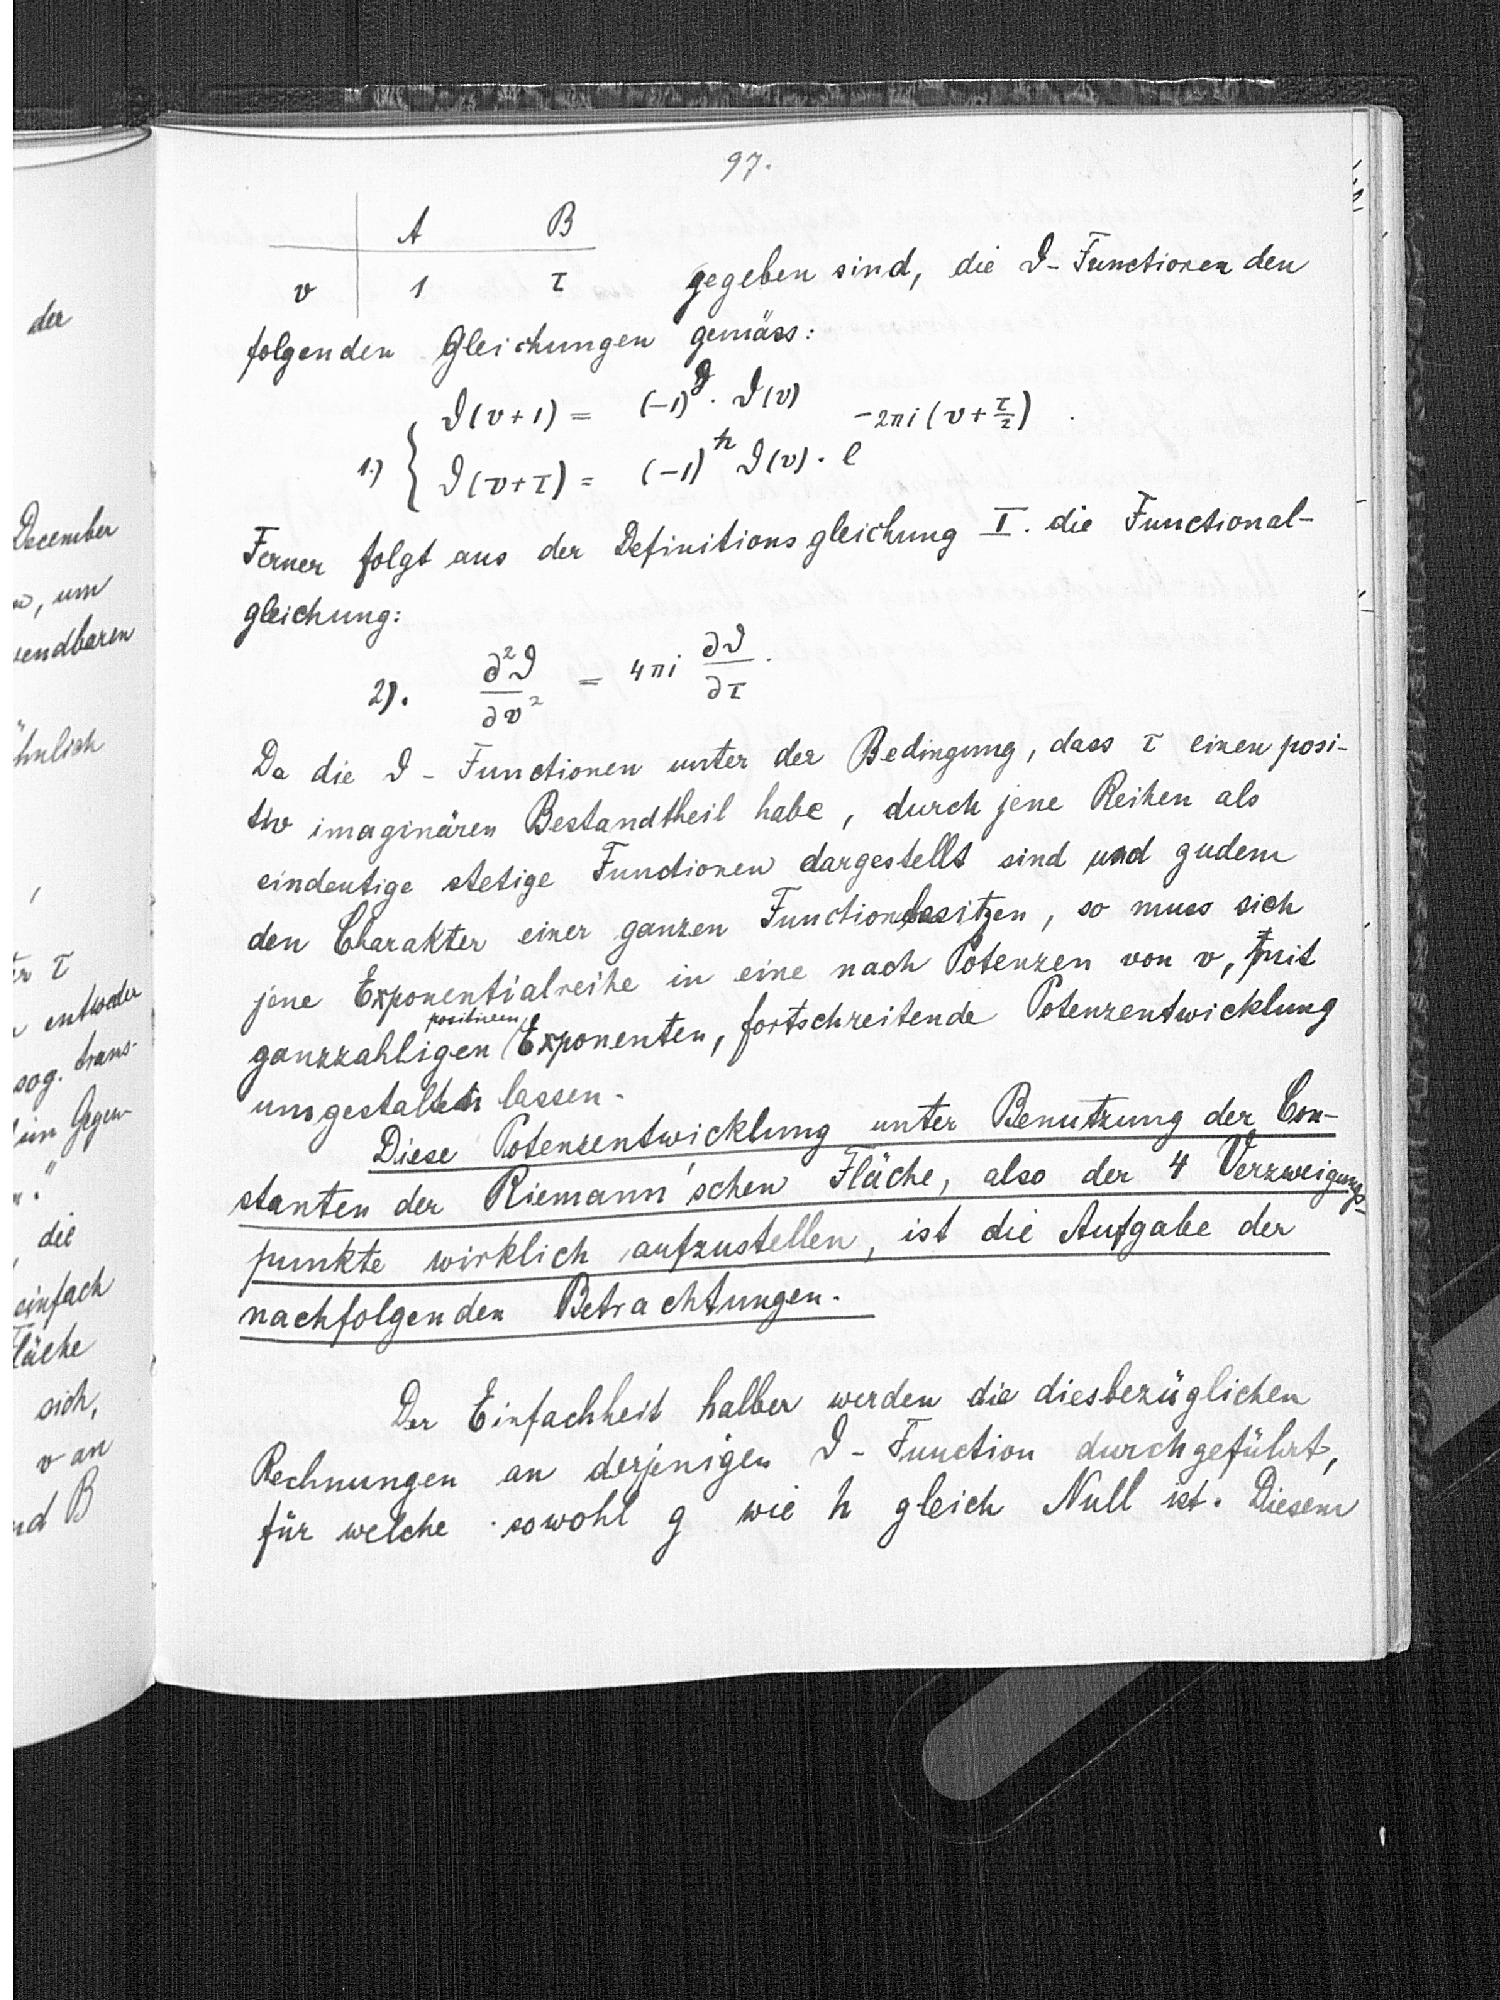 der
December
um
endbaren
hnlich
τ
entweder
sog. trans-
Gegen-
die
einfach
Fläche
sich,
v an
und B
97.
A B
v 1 τ gegeben sind, die ϑ-Functionen den
folgenden Gleichungen gemäss:
ϑ(v+1) = (-1)^g · ϑ(v)
1.) { ϑ(v+τ) = (-1)^h ϑ(v) · e^{-2πi(v+τ/2)} .
Ferner folgt aus der Definitionsgleichung I. die Functional-
gleichung:
2). ∂²ϑ/∂v² = 4πi ∂ϑ/∂τ .
Da die ϑ-Functionen unter der Bedingung, dass τ einen posi-
tiv imaginären Bestandtheil habe, durch jene Reihen als
eindeutige stetige Functionen dargestellt sind und zudem
den Charakter einer ganzen Function besitzen, so muss sich
jene Exponentialreihe in eine nach Potenzen von v, mit
ganzzahligen positiven Exponenten, fortschreitende Potenzentwicklung
umgestalten lassen.
Diese Potenzentwicklung unter Benutzung der Con-
stanten der Riemann'schen Fläche, also der 4 Verzweigungs-
punkte wirklich aufzustellen, ist die Aufgabe der
nachfolgenden Betrachtungen.
Der Einfachheit halber werden die diesbezüglichen
Rechnungen an derjenigen ϑ-Function durchgeführt,
für welche sowohl g wie h gleich Null ist. Diesem